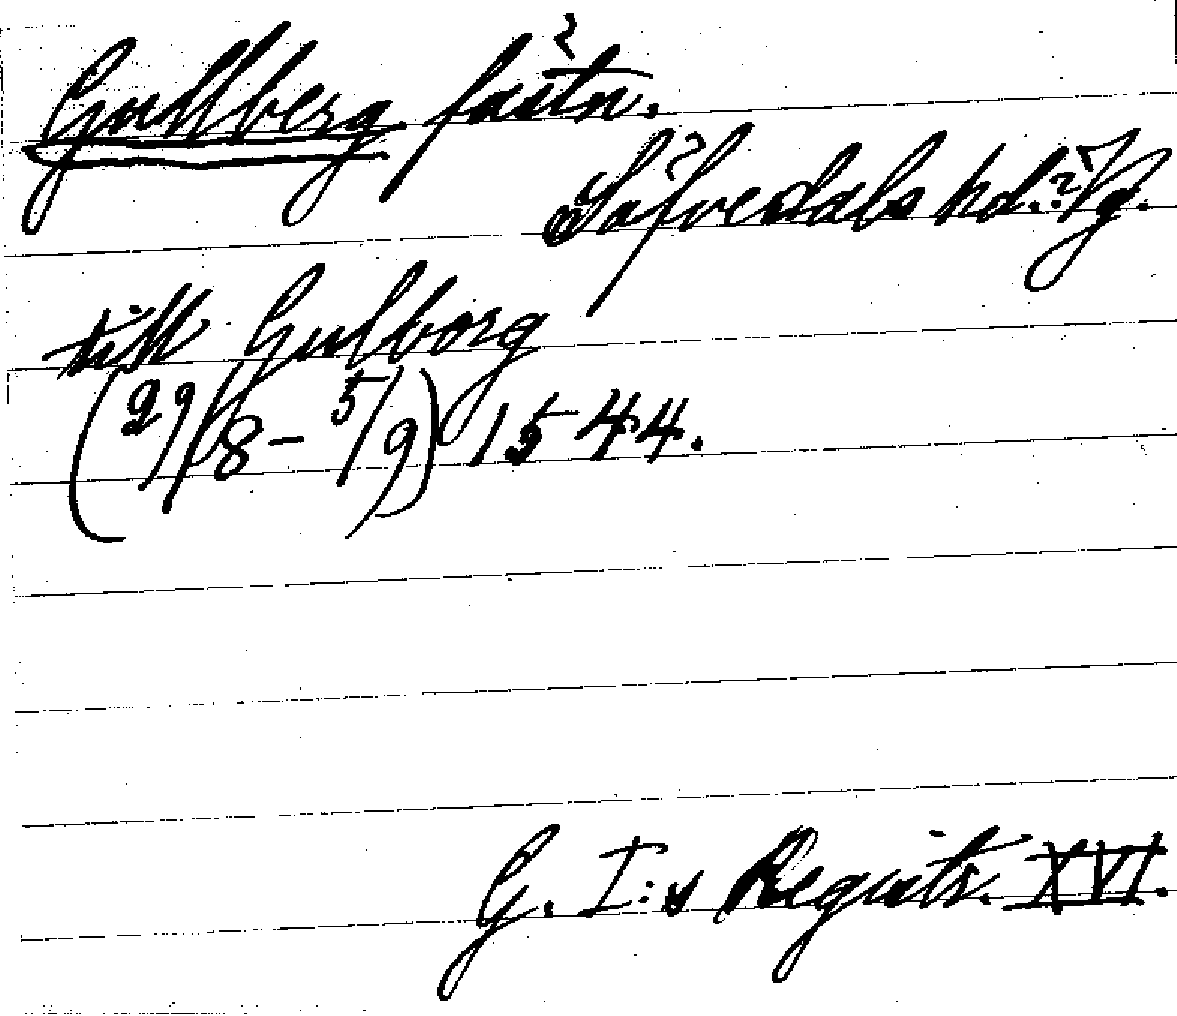 Gullberg fästn.
Säfvedals hd. Vg.
till Gulborg
(29/8 - 5/9) 1544.
G. I:s Registr. XVI.